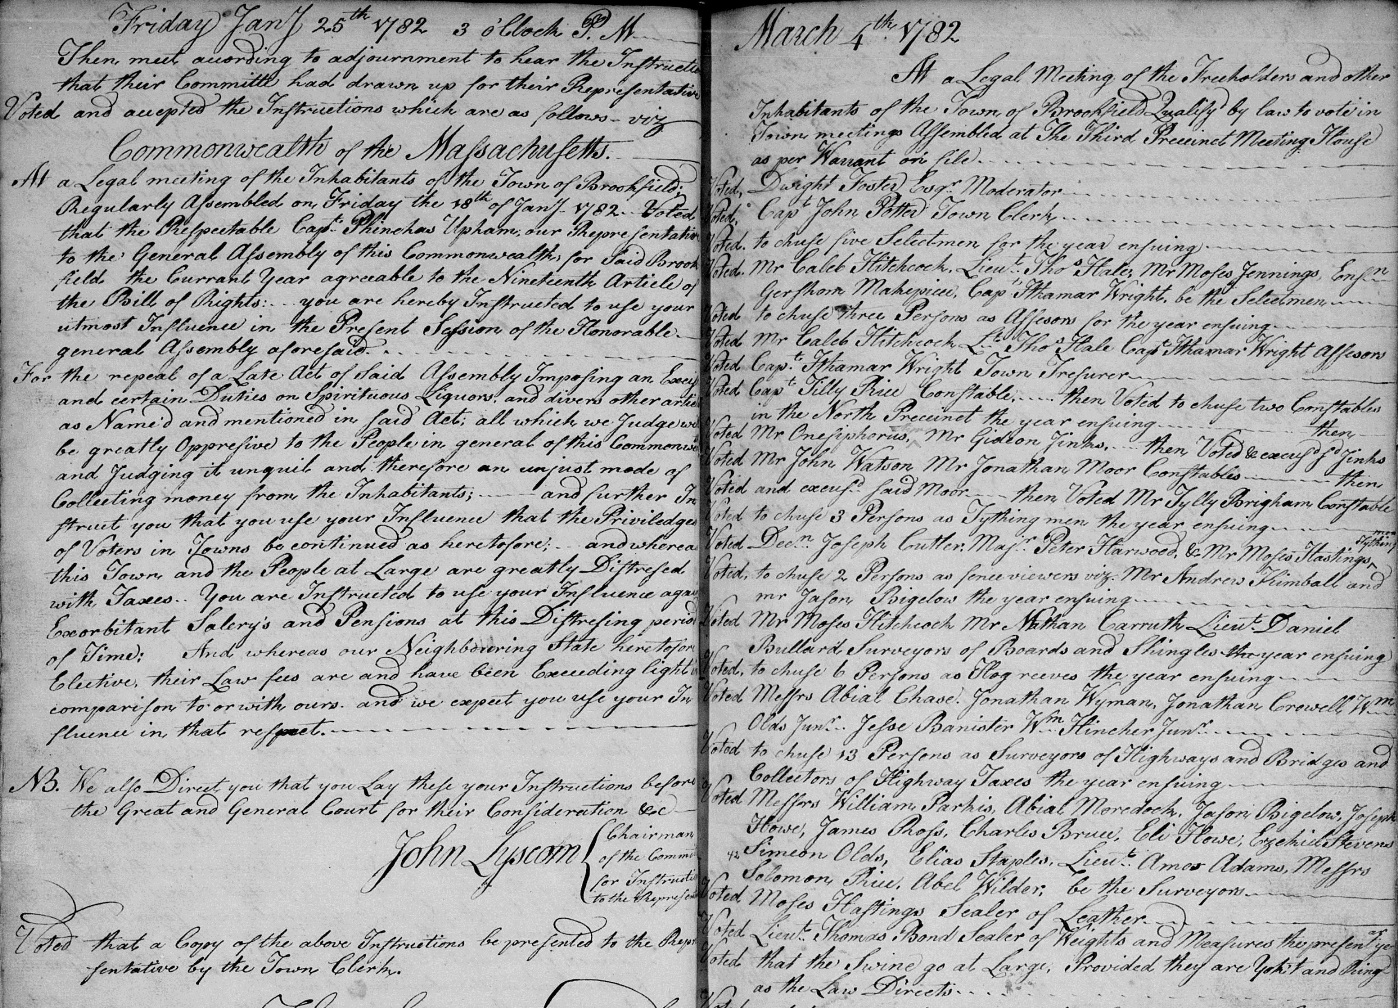 Friday Jany 25th 1782 3 o'Clock P. M
Then meet acording to adjournment to hear the Instructi
that their Committe had drawn up for their Representative
Voted and accepted the Instructions which are as follows - viz
Commonwealth of the Massachusetts.
At a Legal meeting of the Inhabitants of the Town of Brookfield;
Regularly Assembled on Friday the 18th of Jany 1782 - Voted
that the Respectable Capt. Phinehas Upham, our Representative
to the General Assembly of this Commonwealth for Said Brook
field the Currant Year agreeable to the Nineteenth Article of
the Bill of Rights: you are hereby Instructed to use your
utmost Influence in the Present Session of the Honorable
general Assembly aforesaid.
For the repeal of a Late Act of Said Assembly Imposing an Excis
and certain Duties on Spirituous Liquors, and divers other artic
as Name'd and mentioned in Said Act; all which we Judge we
be greatly Oppresive to the People in general of this Commonwe
and Judging it unquil and therefore an unjust mode of
Collecting money from the Inhabitants; and further In
struct you that you use your Influence that the Priviledges
of Voters in Towns be continued as heretofore; and wherea
this Town and the People at Large are greatly Distresed
with Taxes. You are Instructed to use your Influence agai
Exorbitant Salery's and Pensions at this Distresing period
of Time: And whereas our Neighbouring State heretofor
Elective, their Law fees are and have been Exceeding light i
comparison to or with ours. and we expect you use your In
fluence in that respect.
NB. We also Direct you that you Lay these your Instructions before
the Great and General Court for their Consideration &c
John Lyscom
Chairman
of the Commit
for Instructi
to the Represen
Voted that a Copy of the above Instructions be presented to the Repr
sentative by the Town Clerk.
March 4th 1782
At a Legal Meeting of the Freeholders and other
Inhabitants of the Town of Brookfield Qualify'd by law to vote in
Town meetings Assembled at The Third Precinct Meeting House
as per Warrant on file.
Voted, Dwight Foster Esqr Moderator
Voted, Capt John Potter Town Clerk
Voted. to chuse five Selectmen for the year ensuing
Voted. Mr Caleb Hitchcock, Lieut. Thos Hale, Mr Moses Jennings, Ensn
Gershom Makepiece, Capt Ithamar Wright, be the Selectmen
Voted to chuse three Persons as Assesors for the year ensuing
Voted Mr Caleb Hitchcock Lt. Thos Hale Capt Ithamar Wright Assesors
Voted Capt. Ithamar Wright Town Tresurer
Voted Capt. Tilly Rice Constable, then Voted to chuse two Constables
in the North Precinct the year ensuing then
Voted Mr Onesiphorus, Mr Gideon Jinks, then Voted & excus'd sd Jinks
Voted Mr John Watson Mr Jonathan Moor Constables then
Voted and excus'd Said Moor then Voted Mr Tylly Brigham Constable
Voted to chuse 3 Persons as Tything men the year ensuing
Voted Decn. Joseph Cutler, Majr Peter Harwood, & Mr Moses Hastings
Voted, to chuse 2 Persons as fence viewers viz. Mr Andrew Kimball and
mr Jason Bigelow the year ensuing
Voted Mr Moses Hitchcock Mr Nathan Carruth Lieut. Daniel
Bullard Surveyors of Boards and Shingles the year ensuing
Voted, to chuse 6 Persons as Hog reeves the year ensuing
Voted Messrs Abial Chase. Jonathan Wyman, Jonathan Crowell, Wm
Olds Junr. Jesse Banister Wm Hincher Junr
Voted to chuse 13 Persons as Surveyors of Highways and Bridges and
Collectors of Highway Taxes the year ensuing
Voted Messrs William Parks, Abial Moredock, Jason Bigelow, Joseph
Howe, James Ross, Charles Bruce, Eli Howe, Ezekiel Stevens
Simeon Olds, Elias Staples, Lieut. Amos Adams, Messrs
Solomon Rice, Abel Wilder, be the Surveyors
Voted Moses Hastings Sealer of Leather
Voted Lieut. Thomas Bond Sealer of Weights and Measures the present year
Voted that the Swine go at Large, Provided they are Yok't and Ring'
as the Law Directs